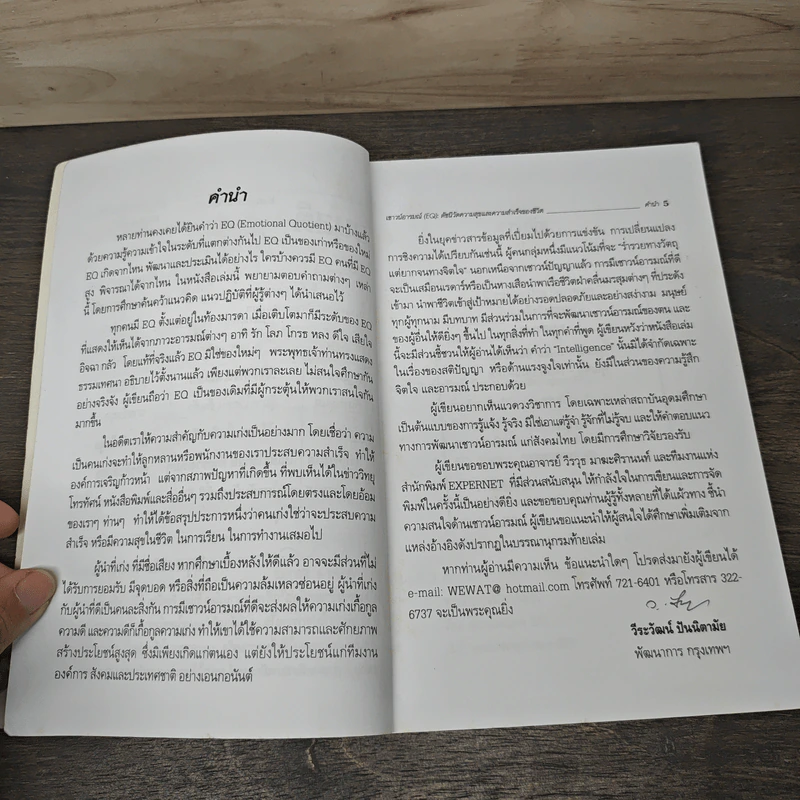 คำนำ
หลายท่านคงเคยได้ยินคำว่า EQ (Emotional Quotient) มาบ้างแล้ว
ด้วยความรู้ความเข้าใจในระดับที่แตกต่างกันไป EQ เป็นของเก่าหรือของใหม่
EQ เกิดจากไหน พัฒนาและประเมินได้อย่างไร ใครบ้างควรมี EQ คนที่มี EQ
สูง พิจารณาได้จากไหน ในหนังสือเล่มนี้ พยายามตอบคำถามต่างๆ เหล่า
นี้ โดยการศึกษาค้นคว้าแนวคิด แนวปฏิบัติที่ผู้รู้ต่างๆ ได้นำเสนอไว้
ทุกคนมี EQ ตั้งแต่อยู่ในท้องมารดา เมื่อเติบโตมาก็มีระดับของ EQ
ที่แสดงให้เห็นได้จากภาวะอารมณ์ต่างๆ อาทิ รัก โลภ โกรธ หลง ดีใจ เสียใจ
อิจฉา กลัว โดยแท้ที่จริงแล้ว EQ มิใช่ของใหม่ๆ พระพุทธเจ้าท่านทรงแสดง
ธรรมเทศนา อธิบายไว้ตั้งนานแล้ว เพียงแต่พวกเราละเลย ไม่สนใจศึกษากัน
อย่างจริงจัง ผู้เขียนถือว่า EQ เป็นของเดิมที่มีผู้กระตุ้นให้พวกเราสนใจกัน
มากขึ้น
ในอดีตเราให้ความสำคัญกับความเก่งเป็นอย่างมาก โดยเชื่อว่า ความ
เป็นคนเก่งจะทำให้ลูกหลานหรือพนักงานของเราประสบความสำเร็จ ทำให้
องค์การเจริญก้าวหน้า แต่จากสภาพปัญหาที่เกิดขึ้น ที่พบเห็นได้ในข่าววิทยุ
โทรทัศน์ หนังสือพิมพ์และสื่ออื่นๆ รวมถึงประสบการณ์โดยตรงและโดยอ้อม
ของเราๆ ท่านๆ ทำให้ได้ข้อสรุปประการหนึ่งว่าคนเก่งใช่ว่าจะประสบความ
สำเร็จ หรือมีความสุขในชีวิต ในการเรียน ในการทำงานเสมอไป
ผู้นำที่เก่ง ที่มีชื่อเสียง หากศึกษาเบื้องหลังให้ดีแล้ว อาจจะมีส่วนที่ไม่
ได้รับการยอมรับ มีจุดบอด หรือสิ่งที่ถือเป็นความล้มเหลวซ่อนอยู่ ผู้นำที่เก่ง
กับผู้นำที่ดีเป็นคนละสิ่งกัน การมีเชาวน์อารมณ์ที่ดีจะส่งผลให้ความเก่งเกื้อกูล
ความดี และความดีก็เกื้อกูลความเก่ง ทำให้เขาได้ใช้ความสามารถและศักยภาพ
สร้างประโยชน์สูงสุด ซึ่งมิเพียงเกิดแก่ตนเอง แต่ยังให้ประโยชน์แก่ทีมงาน
องค์การ สังคมและประเทศชาติ อย่างเอนกอนันต์
เชาวน์อารมณ์ (EQ): ดัชนีวัดความสุขและความสำเร็จของชีวิต คำนำ 5
ยิ่งในยุคข่าวสารข้อมูลที่เปี่ยมไปด้วยการแข่งขัน การเปลี่ยนแปลง
การชิงความได้เปรียบกันเช่นนี้ ผู้คนกลุ่มหนึ่งมีแนวโน้มที่จะ "ร่ำรวยทางวัตถุ
แต่ยากจนทางจิตใจ" นอกเหนือจากเชาวน์ปัญญาแล้ว การมีเชาวน์อารมณ์ที่ดี
จะเป็นเสมือนเรดาร์หรือเป็นหางเสือนำพาเรือชีวิตฝ่าคลื่นมรสุมต่างๆ ที่ประดัง
เข้ามา นำพาชีวิตเข้าสู่เป้าหมายได้อย่างรอดปลอดภัยและอย่างสง่างาม มนุษย์
ทุกผู้ทุกนาม มีบทบาท มีส่วนร่วมในการที่จะพัฒนาเชาวน์อารมณ์ของตน และ
ของผู้อื่นให้ดียิ่งๆ ขึ้นไป ในทุกสิ่งที่ทำ ในทุกคำที่พูด ผู้เขียนหวังว่าหนังสือเล่ม
นี้จะมีส่วนชี้ชวนให้ผู้อ่านได้เห็นว่า คำว่า "Intelligence" นั้นมิได้จำกัดเฉพาะ
ในเรื่องของสติปัญญา หรือด้านแรงจูงใจเท่านั้น ยังมีในส่วนของความรู้สึก
จิตใจ และอารมณ์ ประกอบด้วย
ผู้เขียนอยากเห็นแวดวงวิชาการ โดยเฉพาะเหล่าสถาบันอุดมศึกษา
เป็นต้นแบบของการรู้แจ้ง รู้จริง มิใช่เอาแต่รู้จำ รู้จักที่ไม่รู้จบ และให้คำตอบแนว
ทางการพัฒนาเชาวน์อารมณ์ แก่สังคมไทย โดยมีการศึกษาวิจัยรองรับ
ผู้เขียนขอขอบพระคุณอาจารย์ วีรวุธ มาฆะศิรานนท์ และทีมงานแห่ง
สำนักพิมพ์ EXPERNET ที่มีส่วนสนับสนุน ให้กำลังใจในการเขียนและการจัด
พิมพ์ในครั้งนี้เป็นอย่างดียิ่ง และขอขอบคุณท่านผู้รู้ทั้งหลายที่ได้แผ้วทาง ชี้นำ
ความสนใจด้านเชาวน์อารมณ์ ผู้เขียนขอแนะนำให้ผู้สนใจได้ศึกษาเพิ่มเติมจาก
แหล่งอ้างอิงดังปรากฏในบรรณานุกรมท้ายเล่ม
หากท่านผู้อ่านมีความเห็น ข้อแนะนำใดๆ โปรดส่งมายังผู้เขียนได้
e-mail: WEWAT@ hotmail.com โทรศัพท์ 721-6401 หรือโทรสาร 322-
6737 จะเป็นพระคุณยิ่ง
วีระวัฒน์ ปันนิตามัย
พัฒนาการ กรุงเทพฯ